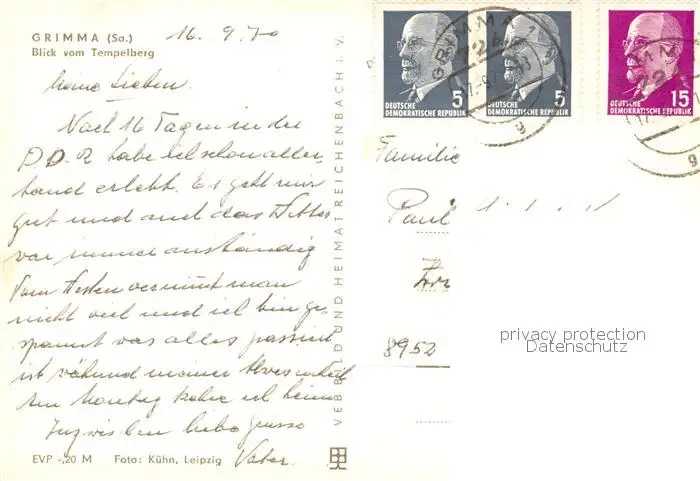 GRIMMA (Sa.)
Blick vom Tempelberg
16. 9. 70
Meine Lieben.
Nach 16 Tagen in der
D.D.R habe ich schon aller-
hand erlebt. Es geht mir
gut und auch das Wetter
war immer anständig
Vom Westen vernimmt man
nicht viel und ich bin ge-
spannt was alles passiert
ist während meiner Abwesenheit
Am Montag kehre ich heim
Inzwischen liebe Grüsse
Vater.
EVP -,20 M Foto: Kühn, Leipzig
VEB BILD UND HEIMAT REICHENBACH i. V.
5
DEUTSCHE
DEMOKRATISCHE REPUBLIK
5
DEUTSCHE
DEMOKRATISCHE REPUBLIK
15
DEUTSCHE
DEMOKRATISCHE REPUBLIK
GRIMMA 1
g
g
Familie
Paul
8952
privacy protection
Datenschutz